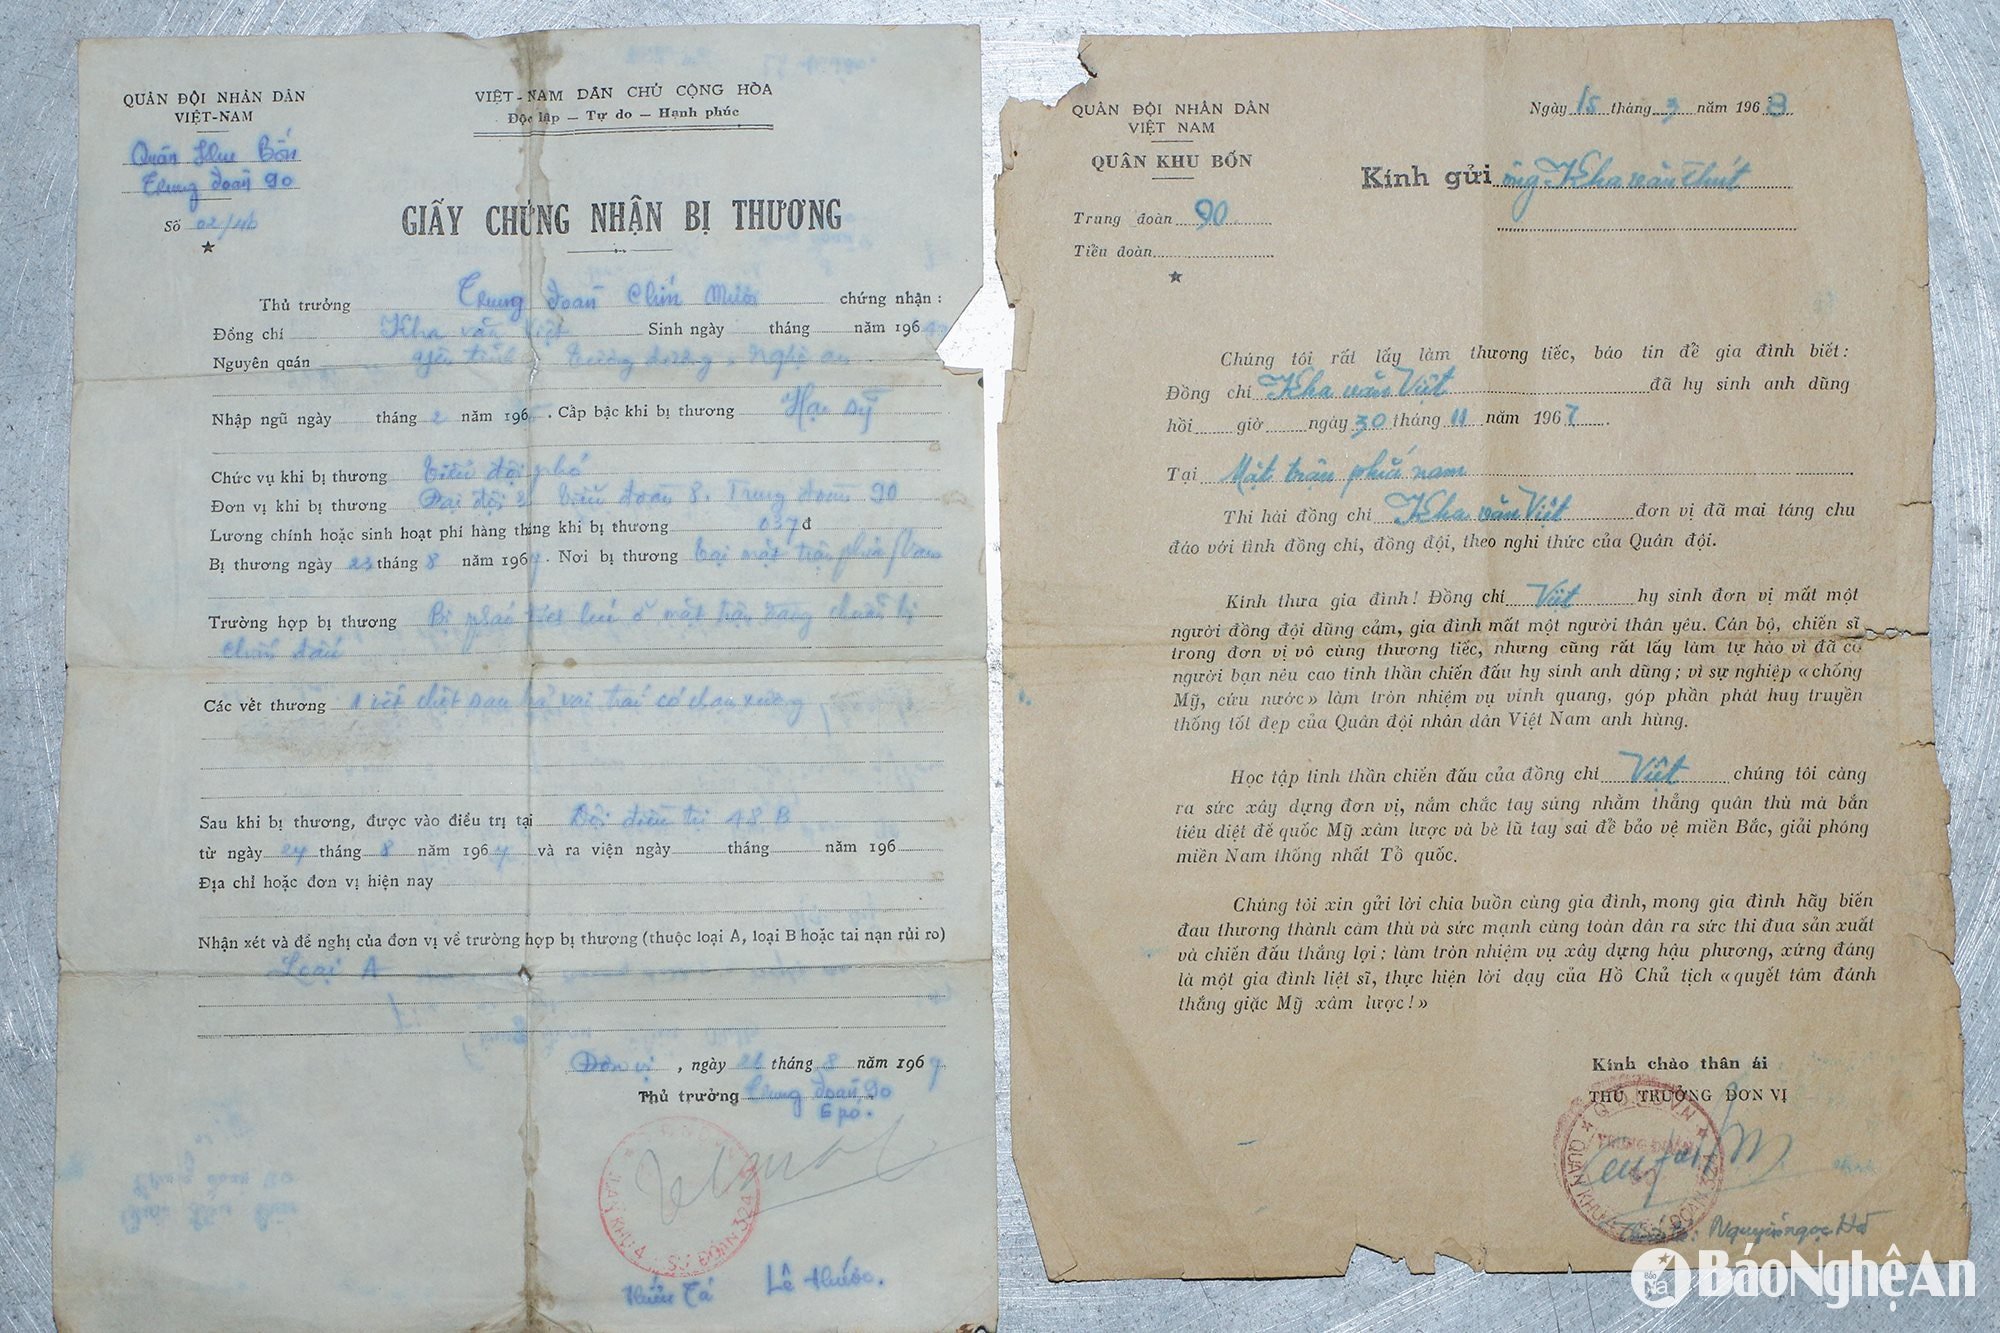 QUÂN ĐỘI NHÂN DÂN
VIỆT-NAM
Quân khu Bốn
Trung đoàn 90
Số 02/
VIỆT-NAM DÂN CHỦ CỘNG HÒA
Độc lập — Tự do — Hạnh phúc
GIẤY CHỨNG NHẬN BỊ THƯƠNG
Thủ trưởng Trung đoàn Chín Mươi chứng nhận :
Đồng chí Kha văn Việt Sinh ngày tháng năm 196
Nguyên quán Yên tĩnh Tương dương, Nghệ an
Nhập ngũ ngày tháng 2 năm 196 . Cấp bậc khi bị thương Hạ sỹ
Chức vụ khi bị thương tiểu đội phó
Đơn vị khi bị thương Đại đội 2 tiểu đoàn 8. Trung đoàn 90
Lương chính hoặc sinh hoạt phí hàng tháng khi bị thương đ
Bị thương ngày 23 tháng 8 năm 1967. Nơi bị thương tại mặt trận phía Nam
Trường hợp bị thương Bị pháo ở mặt trận đang chuẩn bị
chiến đấu
Các vết thương 1 vết sau bả vai trái có chạm xương
Sau khi bị thương, được vào điều trị tại Đội điều trị 48 B
từ ngày 24 tháng 8 năm 1967 và ra viện ngày tháng năm 196
Địa chỉ hoặc đơn vị hiện nay
Nhận xét và đề nghị của đơn vị về trường hợp bị thương (thuộc loại A, loại B hoặc tai nạn rủi ro)
Loại A
Đơn vị , ngày tháng 8 năm 1967
Thủ trưởng Trung đoàn 90
SƯ ĐOÀN 324
Thiếu Tá Lê
QUÂN ĐỘI NHÂN DÂN
VIỆT NAM
QUÂN KHU BỐN
Trung đoàn 90
Tiểu đoàn
Ngày 15 tháng 3 năm 1968
Kính gửi ông Kha văn Thút
Chúng tôi rất lấy làm thương tiếc, báo tin để gia đình biết :
Đồng chí Kha văn Việt đã hy sinh anh dũng
hồi giờ ngày 30 tháng 11 năm 1967.
Tại Mặt trận phía nam
Thi hài đồng chí Kha văn Việt đơn vị đã mai táng chu
đáo với tình đồng chí, đồng đội, theo nghi thức của Quân đội.
Kính thưa gia đình ! Đồng chí Việt hy sinh đơn vị mất một
người đồng đội dũng cảm, gia đình mất một người thân yêu. Cán bộ, chiến sĩ
trong đơn vị vô cùng thương tiếc, nhưng cũng rất lấy làm tự hào vì đã có
người bạn nêu cao tinh thần chiến đấu hy sinh anh dũng ; vì sự nghiệp « chống
Mỹ, cứu nước » làm tròn nhiệm vụ vinh quang, góp phần phát huy truyền
thống tốt đẹp của Quân đội nhân dân Việt Nam anh hùng.
Học tập tinh thần chiến đấu của đồng chí Việt chúng tôi càng
ra sức xây dựng đơn vị, nắm chắc tay súng nhằm thẳng quân thù mà bắn
tiêu diệt đế quốc Mỹ xâm lược và bè lũ tay sai để bảo vệ miền Bắc, giải phóng
miền Nam thống nhất Tổ quốc.
Chúng tôi xin gửi lời chia buồn cùng gia đình, mong gia đình hãy biến
đau thương thành căm thù và sức mạnh cùng toàn dân ra sức thi đua sản xuất
và chiến đấu thắng lợi ; làm tròn nhiệm vụ xây dựng hậu phương, xứng đáng
là một gia đình liệt sĩ, thực hiện lời dạy của Hồ Chủ tịch « quyết tâm đánh
thắng giặc Mỹ xâm lược ! »
Kính chào thân ái
THỦ TRƯỞNG ĐƠN VỊ
Nguyễn ngọc
BáoNghệAn